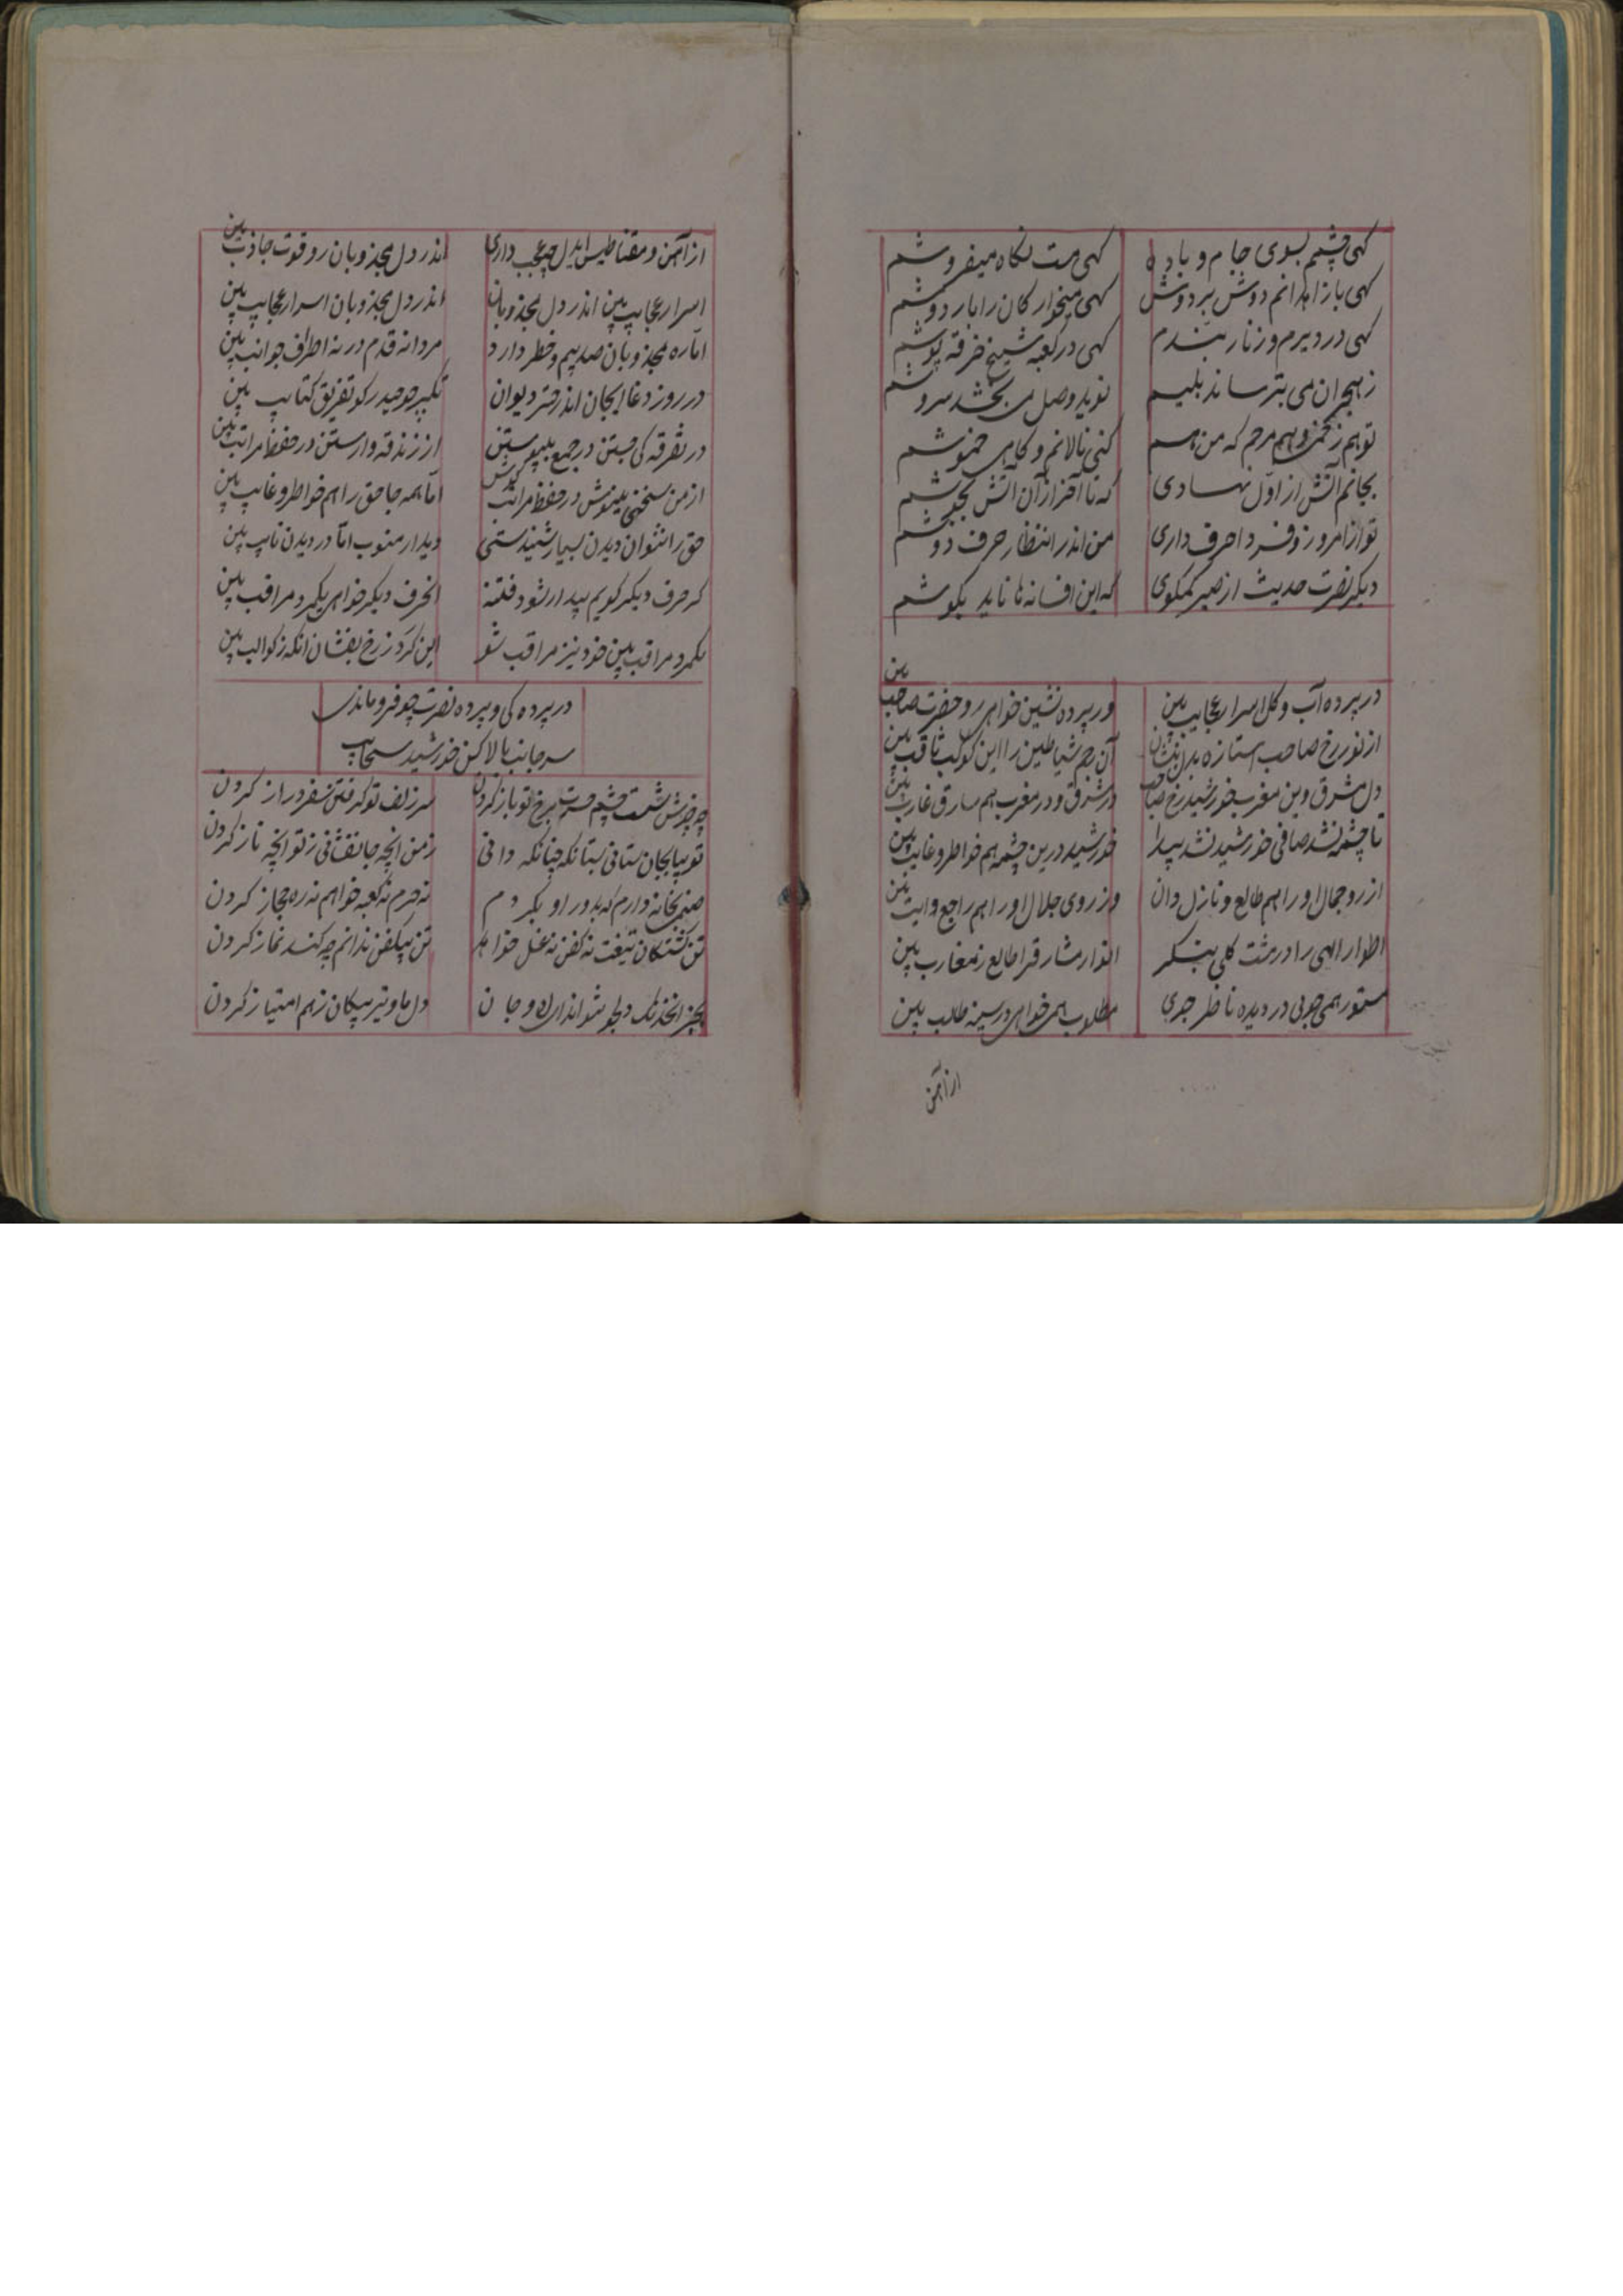 کهی چشم بسوی جام و باده کهی مست نکاه میفروشم
کهی بازاهدانم دوش بر دوش کهی میخوارکان را بار دوشم
کهی در دیرم و زنار بندم کهی در کعبه شیخ خرقه پوشم
ز هجران می بترساند بلیم نوید وصل می بخشد سروشم
تو هم زخم و هم مرهم که من هم کنی نالانم و کاهی خموشم
بجانم آتش از اول نهادی که تا آخر از آن آتش بجوشم
تو از امروز و فردا حرف داری من اندر انتظار حرف دوشم
دیکر نصرت حدیث از غیر کمکوی که این افسانه ها ناید بکوشم
در پرده آب و کل اسرار عجایب بین ور پرده نشین خواهی رو حضرت صاحب بین
از نور رخ صاحب استاره بدل بنشان آن رجم شیاطین را این کوکب ثاقب بین
دل مشرق و بین مغرب خورشید رخ صاحب در مشرق و در مغرب هم سارق غارب بین
تا چشمه نشد صافی خورشید نشد پیدا خورشید درین چشمه هم خواطر و غایب بین
از رو جمال او را هم طالع و نازل دان وز روی جلال او را هم راجع و ایب بین
اطوار الهی را در مشت کلی بنکر انوار مشارق را طالع ز مغارب بین
مستور همی جویی در دیده ناظر جوی مطلوب همی خواهی در سینه طالب بین
از آهن
از آهن و مقناطیس ایدل چه عجب داری اندر دل مجذوبان رو قوت جاذب بین
اسرار عجایب بین اندر دل مجذوبان اندر دل مجذوبان اسرار عجایب بین
اماره مجذوبان صد بیم و خطر دارد مردانه قدم در نه اطراف جوانب بین
در روز دغا ایجان اندر دیوان تکبیر چو حیدر کو تفریق کتایب بین
در تفرقه کی جستن در جمع بپیوستن از زندقه وارستن در حفظ مراتب بین
از من سخنی بنیوش در حفظ مراتب کوش اما همه جا حق را هم خواطر و غایب بین
حق را نتوان دیدن بسیار شنیدستی دیدار منوب اما در دیدن نایب بین
کر حرف دیکر کویم بیدار شود فتنه الحرف دیکر خواهی یکمرد مراقب بین
یکمرد مراقب بین خود نیز مراقب شو این کرد ز رخ بفشان انکه ز کواکب بین
در پرده کی و پرده نصرت چو فروماندی
سر جانب بالا کن خورشید سحایب بین
چه خوش است چشم حسرت برخ تو باز کردن سر زلف تو کرفتن سفر دراز کردن
تو بیا بجان ستانی بستا نکه چنانکه دانی ز من انچه جانفشانی ز تو انچه ناز کردن
صنم بخانه دارم که بدور او بکردم نه حرم نه کعبه خواهم نه ره حجاز کردن
تن کشتکان تیغت نه کفن نه غسل خواهد تن بیکفن ندانم چه کند نماز کردن
بجز انخدنک دلجو شواند از ان و جان دل ما و تیر پیکان ز هم امتیاز کردن